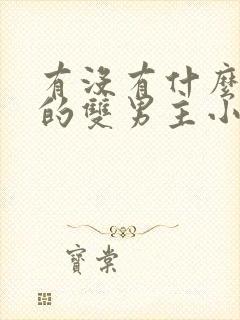 有沒有什麼
的雙男主小
寶棠